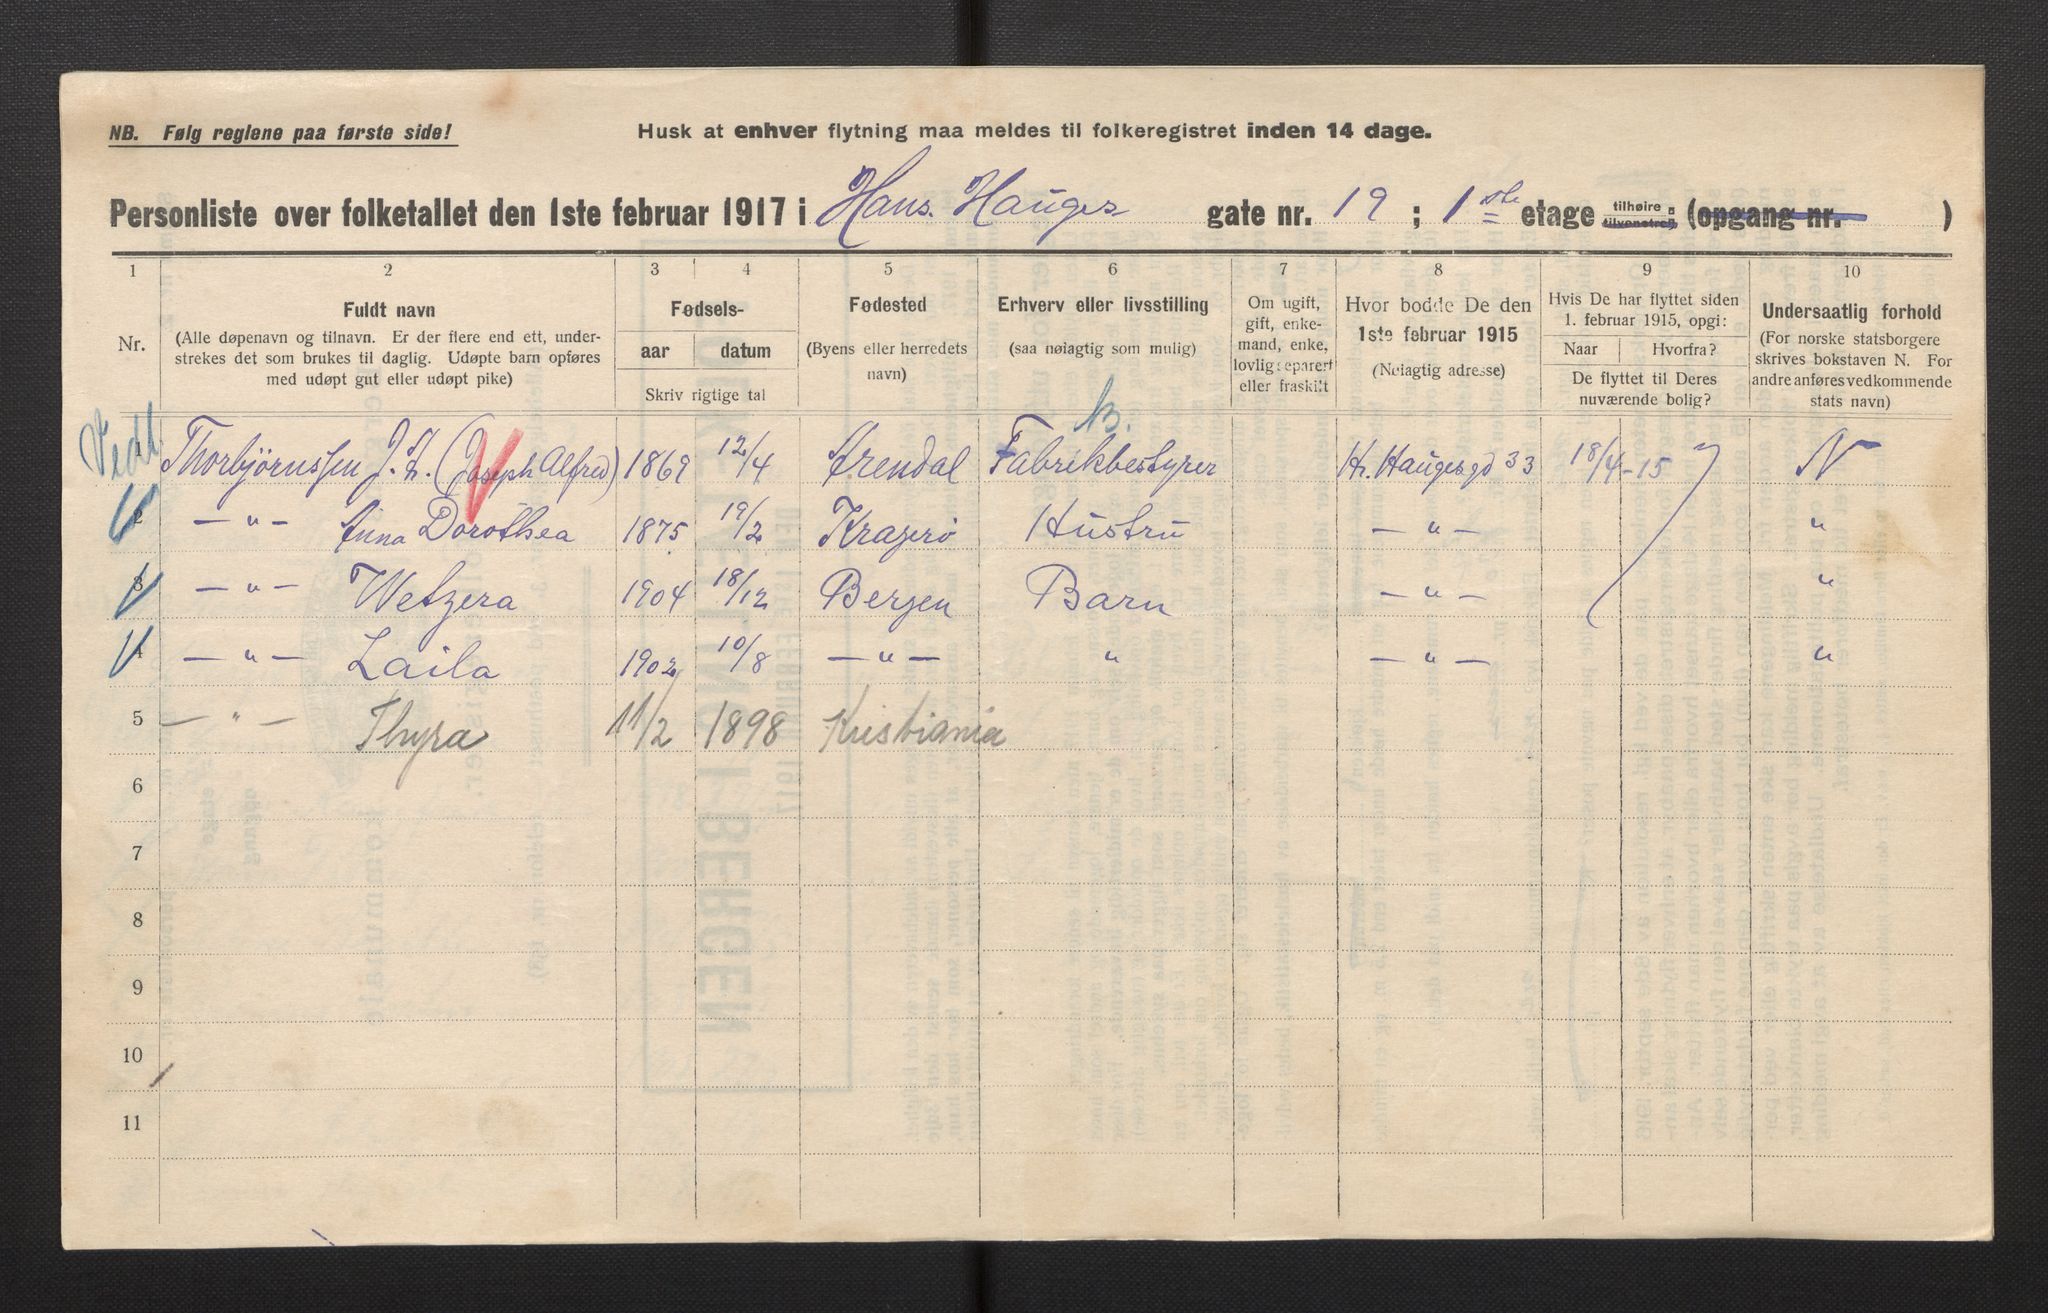 NB. Følg reglene paa første side!
Husk at enhver flytning maa meldes til folkeregistret inden 14 dage.
Personliste over folketallet den 1ste februar 1917 i Hans. Hauges gate nr. 19 ; 1 ste etage tilhøire tilvenstre (opgang nr. )
1 2 3 4 5 6 7 8 9 10
Nr.
Fuldt navn
(Alle døpenavn og tilnavn. Er der flere end ett, under-
strekes det som brukes til daglig. Udøpte barn opføres
med udøpt gut eller udøpt pike)
Fødsels-
aar datum
Skriv rigtige tal
Fødested
(Byens eller herredets
navn)
Erhverv eller livsstilling
(saa nøiagtig som mulig)
Om ugift,
gift, enke-
mand, enke,
lovlig separert
eller fraskilt
Hvor bodde De den
1ste februar 1915
(Nøiagtig adresse)
Hvis De har flyttet siden
1. februar 1915, opgi:
Naar Hvorfra?
De flyttet til Deres
nuværende bolig?
Undersaatlig forhold
(For norske statsborgere
skrives bokstaven N. For
andre anføres vedkommende
stats navn)
1 Thorbjørnssen J. A. (Joseph Alfred) 1869 12/4 Arendal Fabrikbestyrer H. Haugesgd 33 18/4-15 N
2 — " — Anna Dorothea 1875 19/2 Kragerö Hustru — " — "
3 — " — Wetzera 1904 18/12 Bergen Barn — " — "
4 — " — Laila 1902 10/8 — " — " — " — "
5 — " — Thyra 11/2 1898 Kristiania
6
7
8
9
10
11